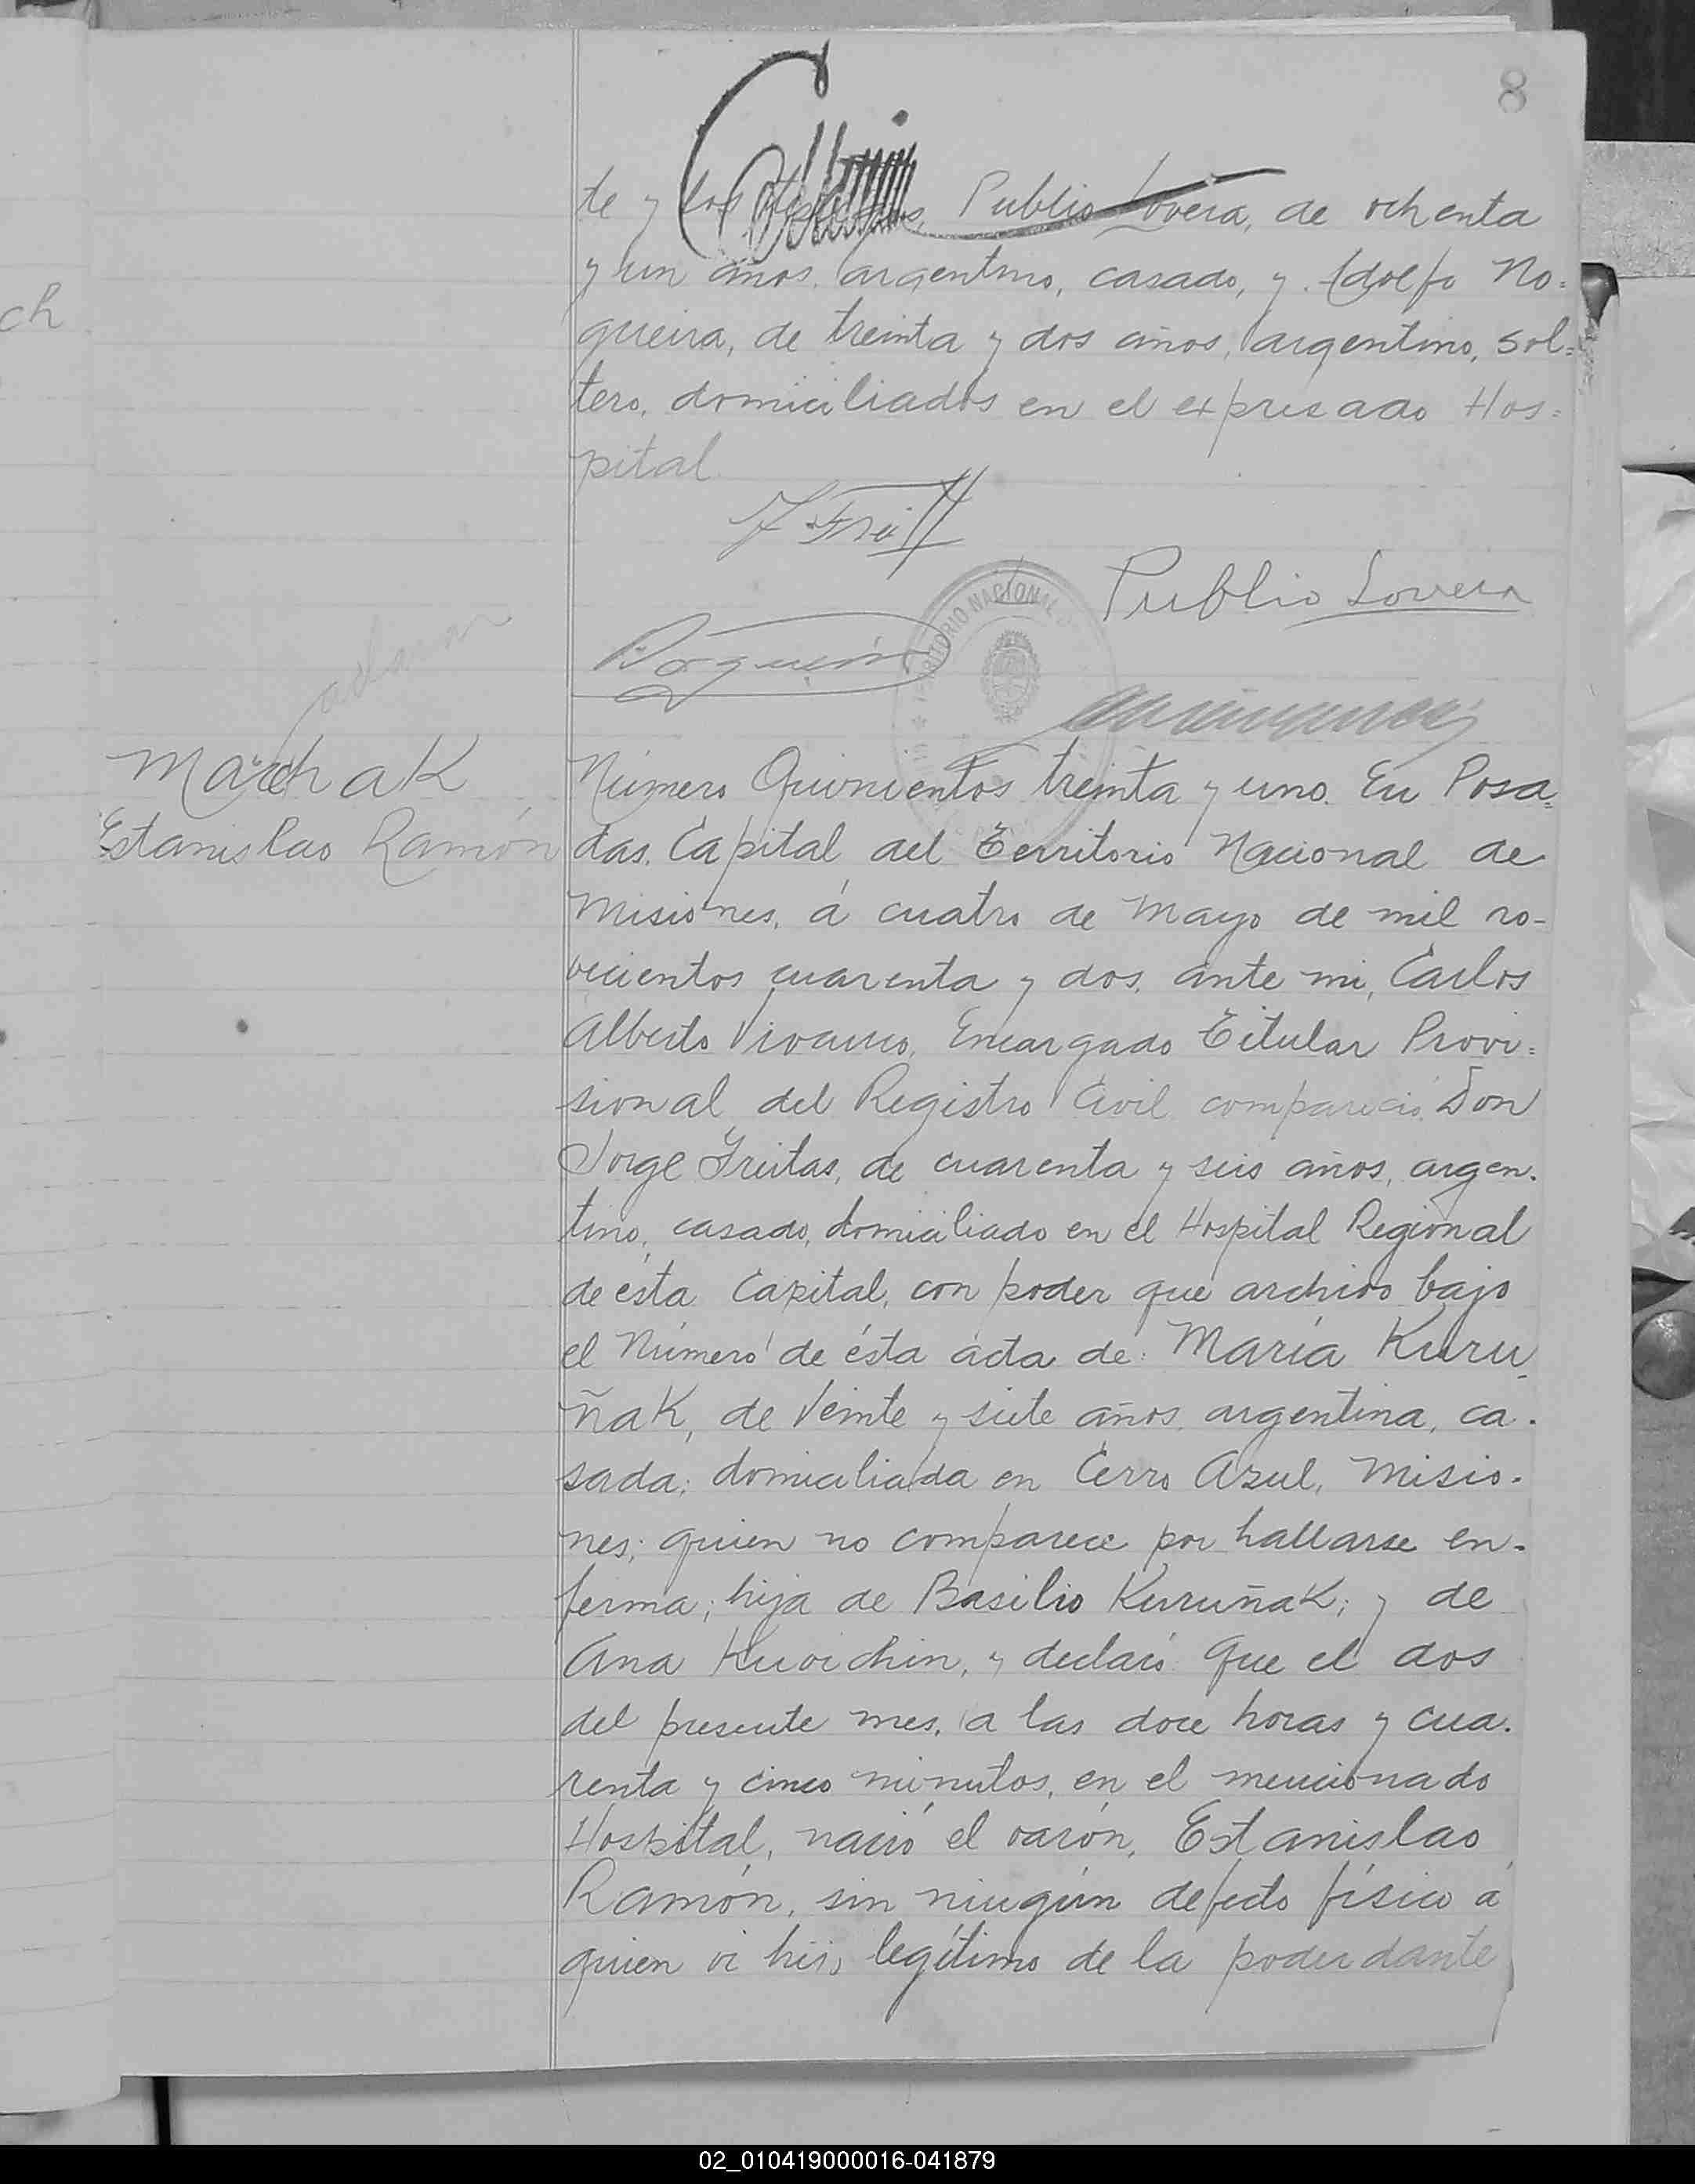 8
te y los testigos, Publio Lovera, de ochenta
y un años, argentino, casado, y Adolfo No=
gueira, de treinta y dos años, argentino, sol=
tero, domiciliados en el expresado Hos=
pital
ch
Publio Lovera
TERRITORIO NACIONAL D
Marchak
Estanislao Ramón
Número Quinientos treinta y uno. En Posa=
das, Capital del Territorio Nacional de
Misiones, á cuatro de Mayo de mil no-
vecientos cuarenta y dos, ante mi, Carlos
Alberto Vivanco, Encargado Titular Provi=
sional del Registro Civil compareció Don
Jorge Freitas, de cuarenta y seis años, argen-
tino, casado, domiciliado en el Hospital Regional
de ésta Capital, con poder que archivo bajo
el Número de ésta acta de: María Kuru-
ñak, de veinte y siete años, argentina, ca-
sada; domiciliada en Cerro Azul, Misio-
nes; quien no comparece por hallarse en-
ferma; hija de Basilio Kuruñak; y de
Ana Kuvichin, y declaró: Que el dos
del presente mes, a las doce horas y cua-
renta y cinco minutos, en el mencionado
Hospital, nació el varón, Estanislao
Ramón, sin ningún defecto físico á
quien vi hijo legítimo de la poderdante
02_010419000016-041879